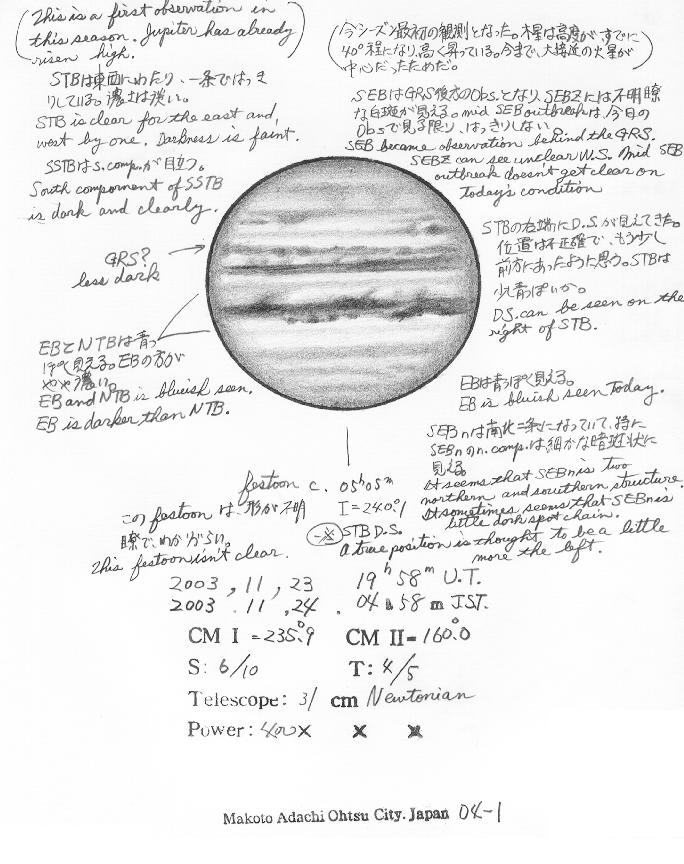 (This is a first observation in
this season. Jupiter has already
risen high.)
(今シーズン最初の観測となった。木星は高度が、すでに
40°程になり、高く昇っている。今まで、大接近の火星が
中心だったためだ。)
STBは東西にわたり、一条ではっき
りしている。濃さは淡い。
STB is clear for the east and,
west by one. Darkness is faint.
SSTBはS.comp.が目立つ。
South component of SSTB
is dark and clearly.
SEBはGRS後方のObs.となり、SEBZには不明瞭
な白斑が見える。mid SEB outbreakは、今日の
Obsで見る限り、はっきりしない。
SEB became observation behind the GRS.
SEBZ can see unclear W.S. Mid SEB
outbreak doesn't get clear on
today's condition
GRS?
less dark
STBの右端にD.S.が見えてきた。
位置は不正確で、もう少し
前方にあったように思う。STBは
少し青っぽいか。
D.S. can be seen on the
right of STB.
EBとNTBは青っ
ぽく見える。EBの方が
やや濃い。
EB and NTB is bluish seen.
EB is darker than NTB.
EBは青っぽく見える。
EB is bluish seen Today.
SEBnは南北二条になっていて、特に
SEBnのn.comp.は細かな暗斑状に
見える
It seems that SEBn is two
northern and southern structure.
It sometimes seems that SEBn is
little dark spot chain.
festoon c. 05h05m
I=240.°1
このfestoonは、形が不明
瞭で、わかりずらい。
This festoon isn't clear.
STB D.S.
A true position is thought to be a little
more the left.
2003, 11, 23 19h 58m U.T.
2003. 11, 24. 04h 58m JST.
CM I = 235.°9 CM II= 160.°0
S: 6/10 T: 4/5
Telescope: 31 cm Newtonian
Power: 400× × ×
Makoto Adachi Ohtsu City. Japan 04-1